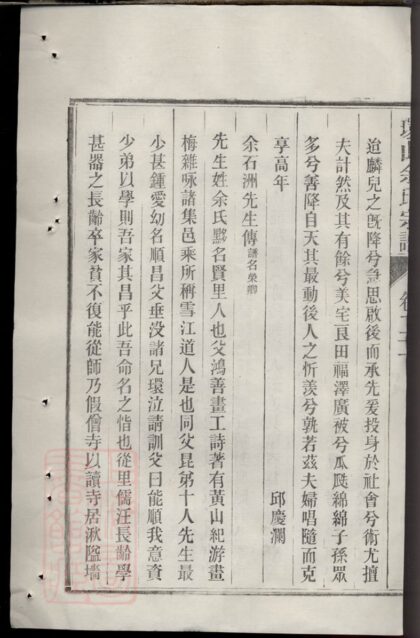 迨麟兒之旣降兮急思啟後而承先爰投身於社會兮術尤擅
夫計然及其有餘兮美宅良田福澤廣被兮瓜瓞綿綿子孫眾
多兮善降自天其最動後人之忻羨兮孰若茲夫婦唱隨而克
享高年
邱慶瀾
余石洲先生傳譜名榮卿
先生姓余氏黟名賢里人也父鴻善畫工詩著有黃山紀游畫
梅雜咏諸集邑乘所稱雪江道人是也同父昆弟十人先生最
少甚鍾愛幼名順昌父垂没諸兄環泣請訓父曰能順我意資
少弟以學則吾家其昌乎此吾命名之恉也從里儒汪長齡學
甚器之長齡卒家貧不復能從師乃假僧寺以讀寺居湫隘墻
余氏宗譜 卷